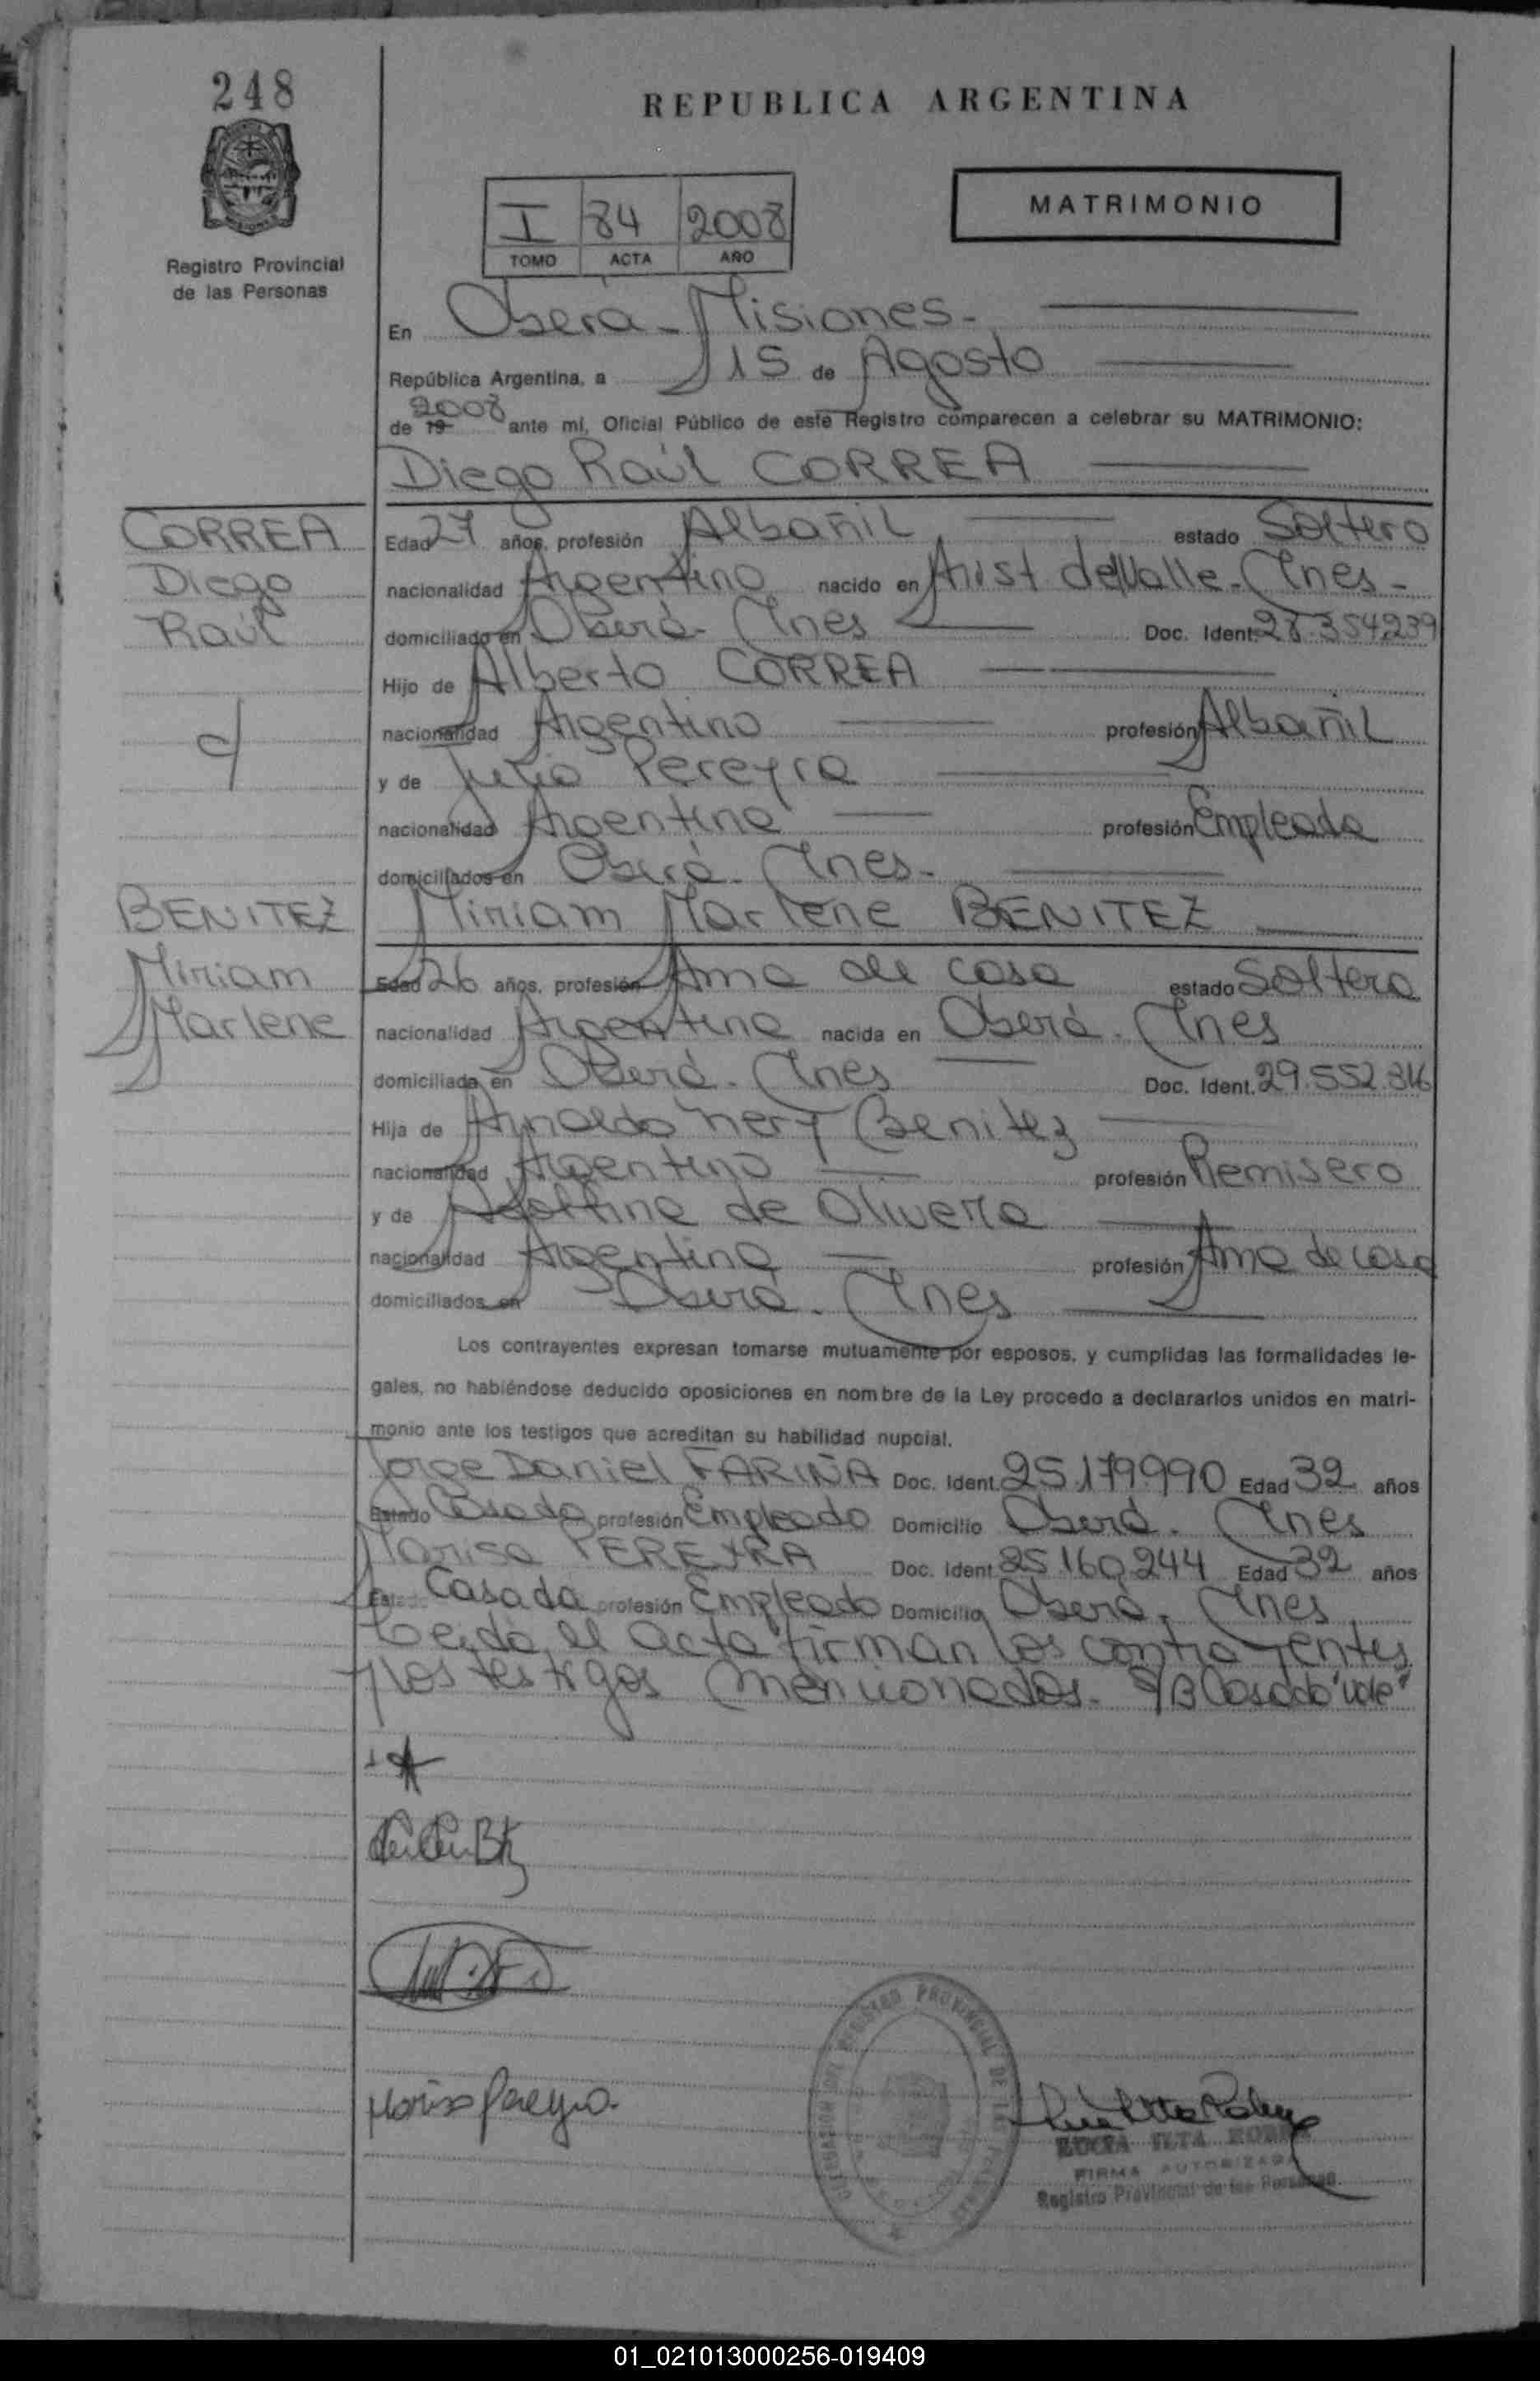 248
REPUBLICA ARGENTINA
MATRIMONIO
I 84 2008
TOMO ACTA AÑO
Registro Provincial
de las Personas
En Oberá - Misiones -
República Argentina, a 15 de Agosto
de 19 2008 ante mí, Oficial Público de este Registro comparecen a celebrar su MATRIMONIO:
Diego Raúl CORREA
CORREA
Diego
Raúl
c/
Edad 27 años, profesión Albañil estado Soltero
nacionalidad Argentino nacido en Arist delValle - Mnes -
domiciliado en Oberá - Mnes Doc. Ident. 28.354.239
Hijo de Alberto CORREA
nacionalidad Argentino profesión Albañil
y de Julia Pereyra
nacionalidad Argentina profesión Empleada
domiciliados en Oberá - Mnes -
BENITEZ
Miriam
Marlene
Miriam Marlene BENITEZ
Edad 26 años, profesión Ama de casa estado Soltera
nacionalidad Argentina nacida en Oberá - Mnes
domiciliada en Oberá - Mnes Doc. Ident. 29.552.316
Hija de Arnoldo Nery Benitez
nacionalidad Argentino profesión Remisero
y de de Olivera
nacionalidad Argentina profesión Ama de casa
domiciliados en Oberá - Mnes
Los contrayentes expresan tomarse mutuamente por esposos, y cumplidas las formalidades le-
gales, no habiéndose deducido oposiciones en nombre de la Ley procedo a declararlos unidos en matri-
monio ante los testigos que acreditan su habilidad nupcial.
Jorge Daniel FARIÑA Doc. Ident. 25.179.990 Edad 32 años
Estado Casado profesión Empleado Domicilio Oberá - Mnes
Marisa PEREYRA Doc. Ident. 25.160.244 Edad 32 años
Estado Casada profesión Empleado Domicilio Oberá, Mnes
Leida el acta firman los contrayentes
y los testigos mencionados - S/B Casado "vale"
Marisa Pereyra.
DELEGACION DEL REGISTRO PROVINCIAL DE LAS PERSONAS
FIRMA AUTORIZADA
Registro Provincial de las Personas
01_021013000256-019409